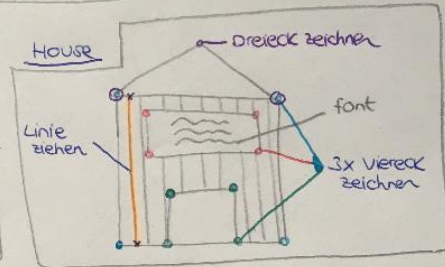 House
Dreieck zeichnen
font
Linie
ziehen
3x Viereck
zeichnen